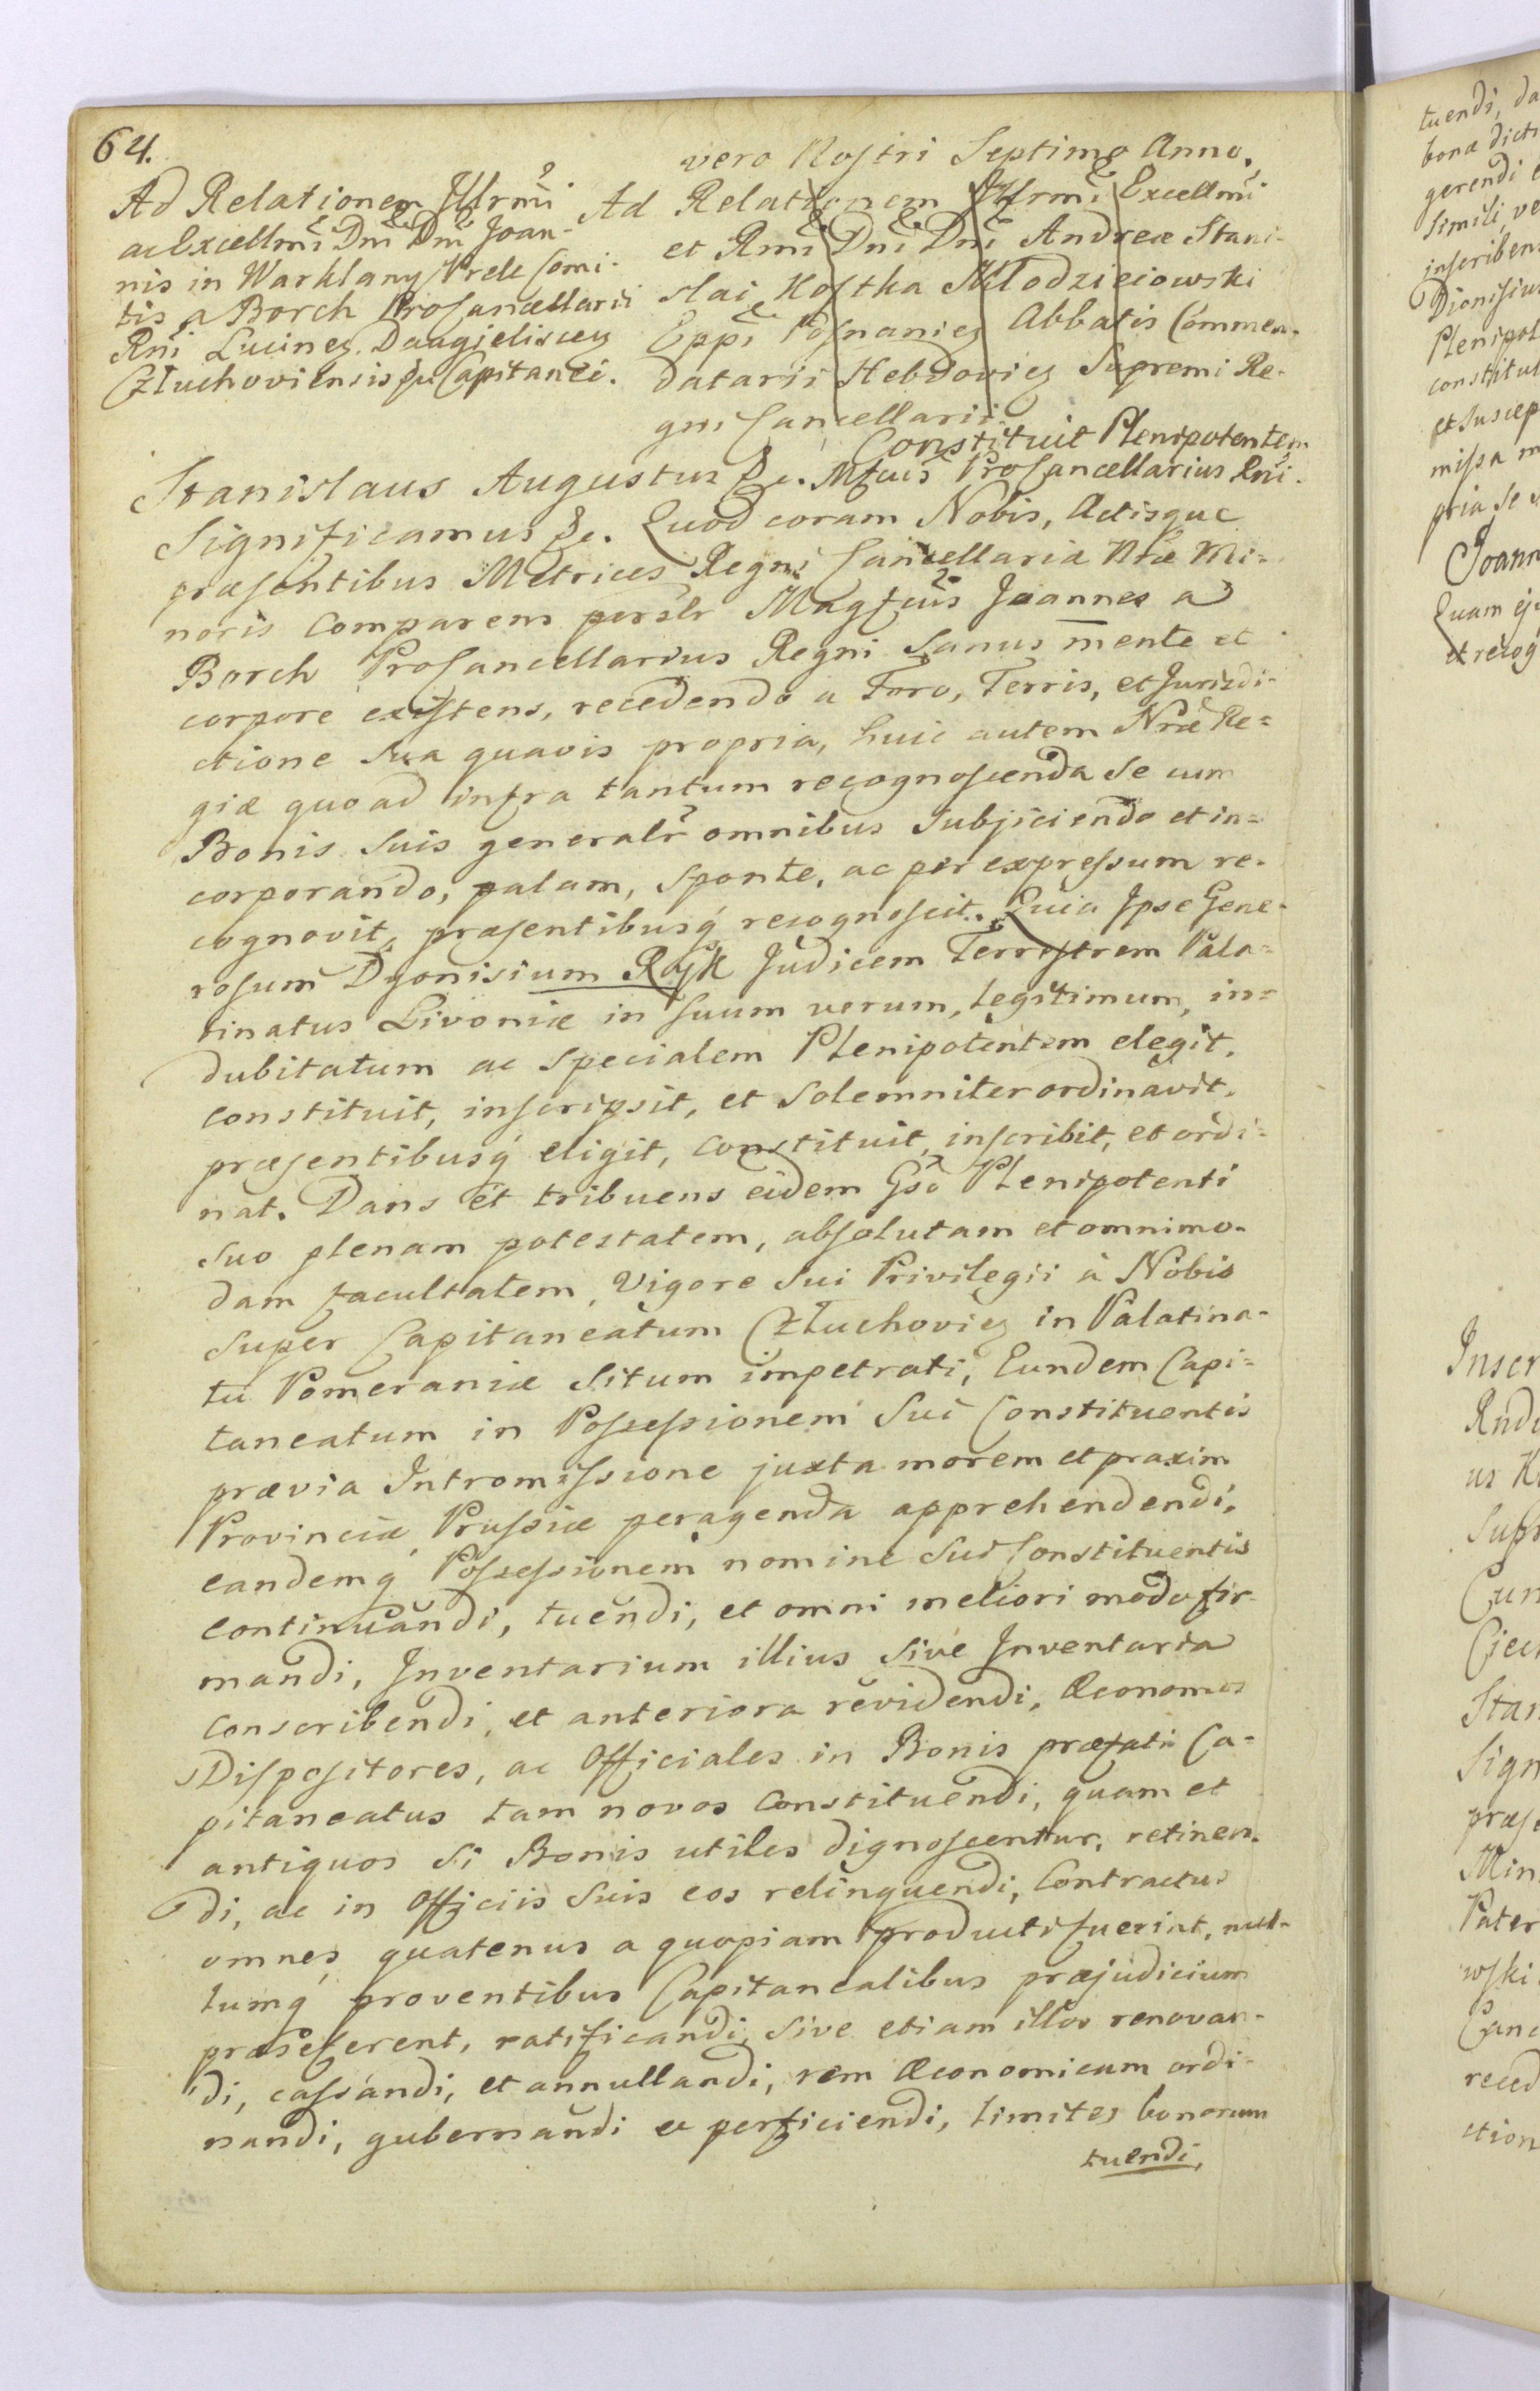 64.
vero Nostri Septimo Anno.
Ad Relationem Illrmi
ac Excellmi Dni Dni Joan-
nis in Warklany Prele Comi-
tis a Borch ProCancellarii
Rni Lucineɳ. Daugieliscen
Człuchoviensis &c Capitanei.
Ad Relationem Illrmi Excellmi
et Rmi Dni Dni Andreæ Stani-
slai Kostka Młodzieiowski
Eppi Posnanien Abbatis Commen-
datarii Hebdovien Supremi Re-
gni Cancellarii.
Constituit Plenipotentem
Mfcus ProCancellarius Rni.
Stanislaus Augustus &c.
Significamus &c. Quod coram Nobis, Actisque
præsentibus Metrices Regni Cancellariæ Nræ Mi-
noris comparens persLr Magfcus Joannes a
Borch ProCancellarius Regni Sanus mente et
corpore existens, recedendo a Foro, Terris, et Jurisdi-
ctione sua quavis propria, huic autem Nræ Re-
giæ quo ad infra tantum recognoscenda se cum
Bonis suis generalr omnibus subjiciendo et in-
corporando, palam, sponte, ac per expressum re-
cognovit, præsentibusq recognoscit. Quia Ipse Gene-
rosum Dyonisium Ryk Judicem Terrestrem Pala-
tinatus Livoniæ in suum verum, legitimum, in-
dubitatum ac specialem Plenipotentem elegit,
constituit, inscripsit, et solemniter ordinavit,
præsentibusq eligit, constituit, inscribit, et ordi-
nat. Dans et tribuens eidem Gso Plenipotenti
suo plenam potestatem, absolutam et omnimo-
dam facultatem, Vigore sui Privilegii à Nobis
super Capitaneatum Człuchovien in Palatina-
tu Pomeraniæ situm impetrati, Eundem Capi-
taneatum in Possessionem sui Constituentis
prævia Intromissione juxta morem et praxim
Provinciæ Prussiæ peragenda apprehendendi,
eandemq Possessionem nomine sui Constituentis
continuandi, tuendi, et omni meliori modo fir-
mandi, Inventarium illius sive Inventaria
conscribendi, et anteriora revidendi, Œconomos
Dispositores, ac Officiales in Bonis præfati Ca-
pitaneatus tam novos constituendi, quam et
antiquos si Bonis utiles dignoscentur, retinen-
di, ac in Officiis suis eos relinquendi, Contractus
omnes, quatenus a quopiam producti fuerint, nul-
lumq proventibus Capitanealibus præjudicium
præseferent, ratificandi, sive etiam illos renovan-
di, cassandi, et annullandi, rem Œconomicam ordi-
nandi, gubernandi et perficiendi, limites bonorum
tuendi,
tuendi, da
bona dict
gerendi e
simili, ve
inscriben
Dionisiu
Plenipot
constitut
et suscep
missa m
pria se
Joann
Quam ej
et recog
Inscr
Rnd
us K
Supr
Cun
Ciec
Stan
Sign
præs
Min
Pater
wski
Canc
reced
ction